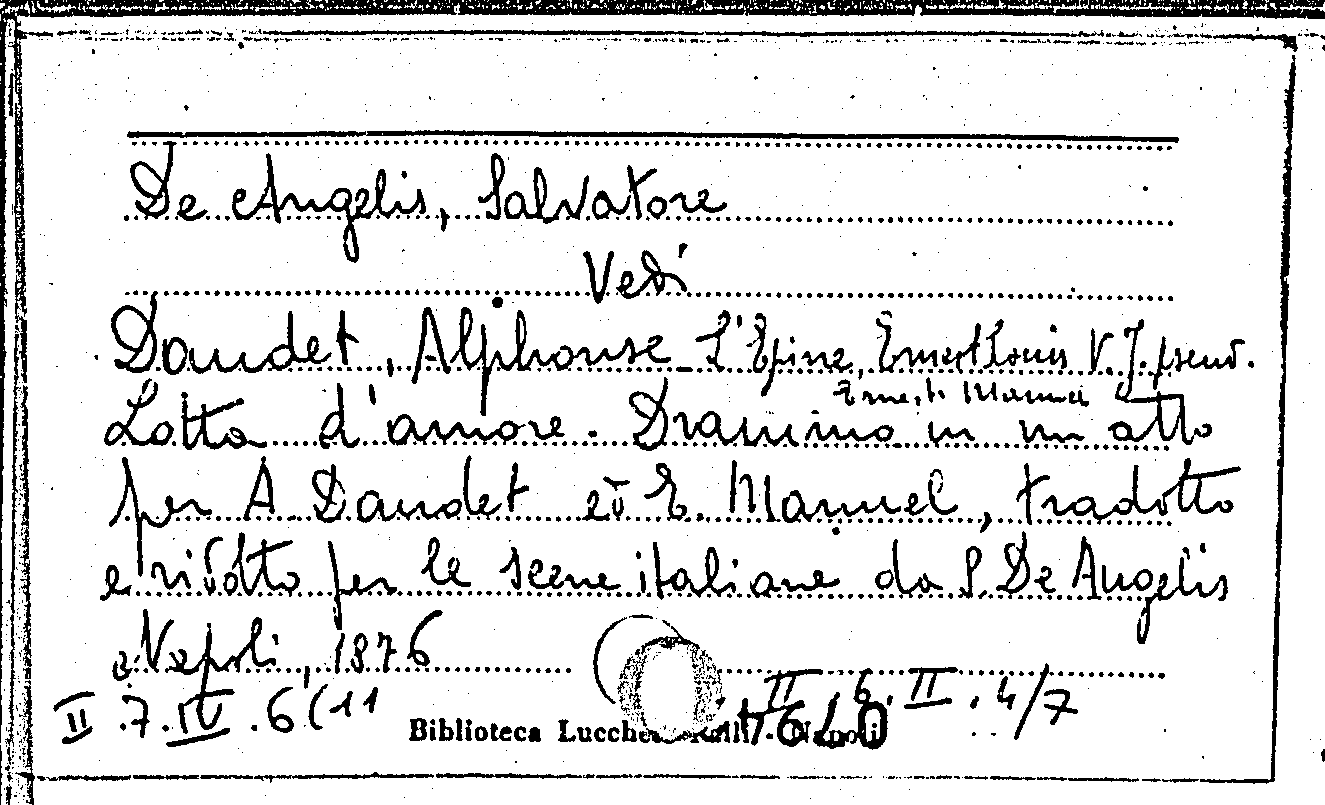 De Angelis, Salvatore
Vedi
Daudet, Alphonse - L'Epine, Ernest Louis V. J. pseud.
Ernesto Manuel
Lotta d'amore. Drammino in un atto
per A. Daudet ed E. Manuel, tradotto
e ridotto per le scene italiane da S. De Angelis
Napoli, 1876
II.7.IV.6(11
II.6.II.4/7
Biblioteca Lucchesi Palli - Napoli